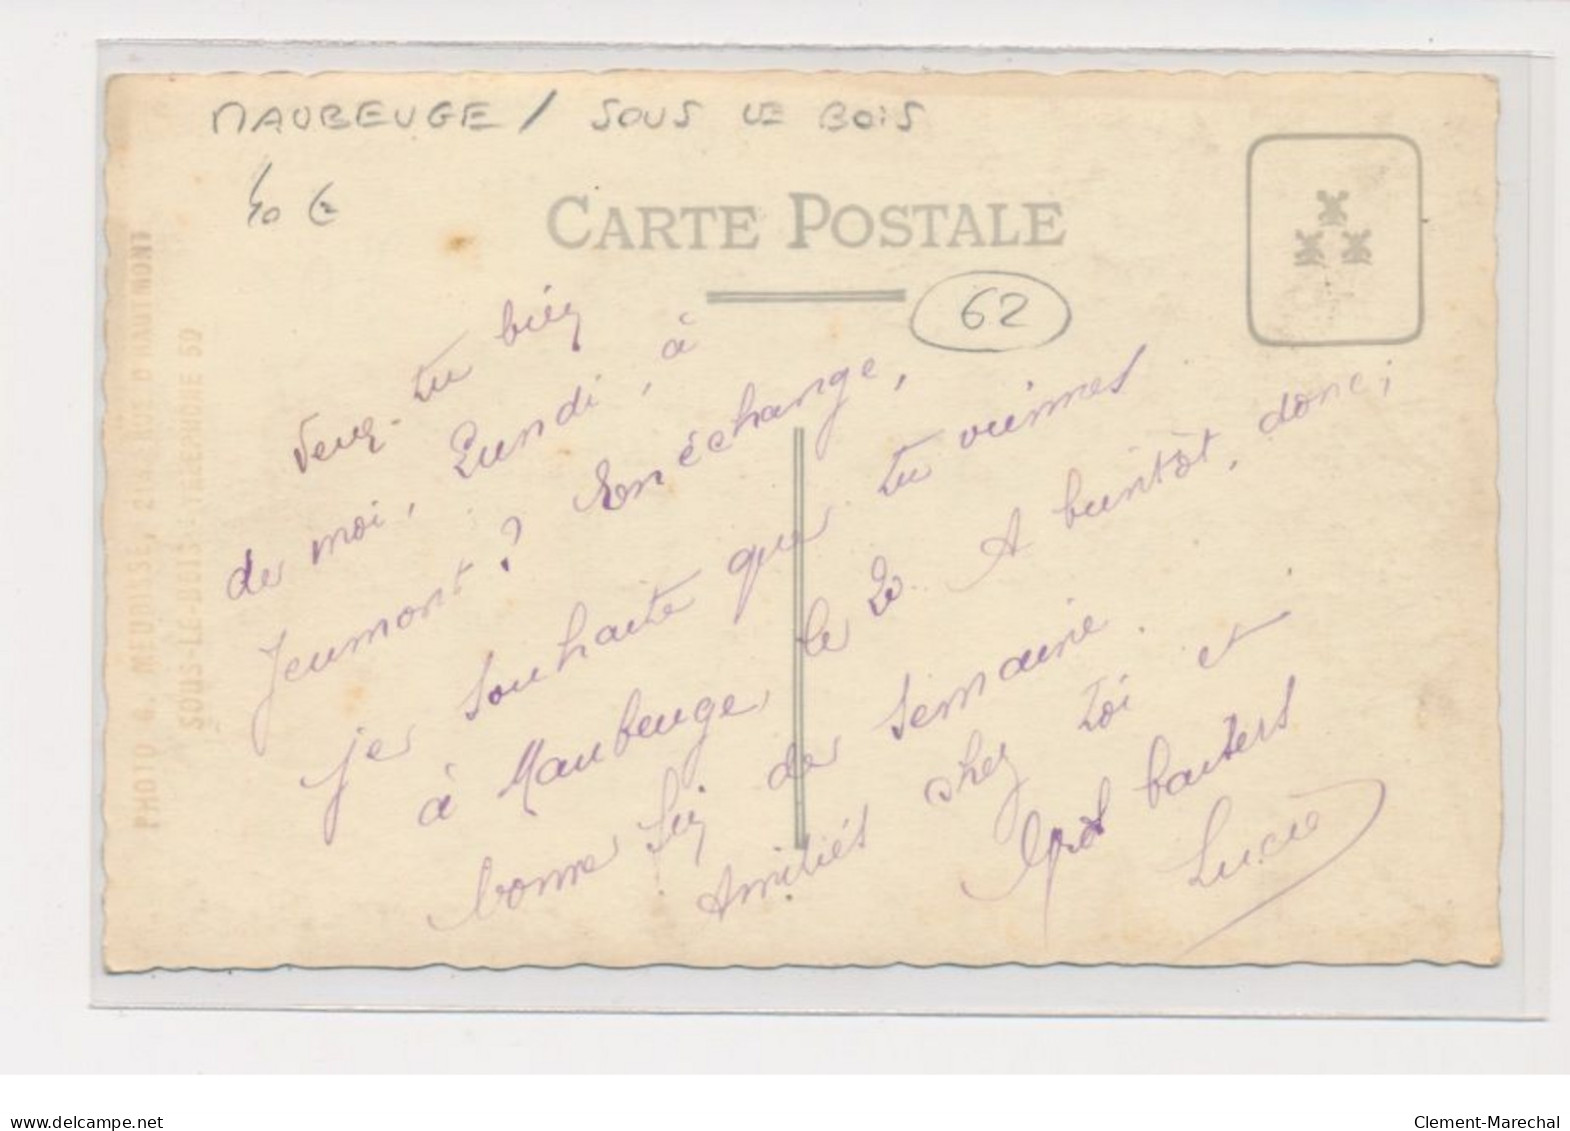 MAUBEUGE / SOUS LE BOIS
40 €
CARTE POSTALE
62
Veux-tu bien
de moi, Lundi, à
Jeumont? En échange,
je souhaite que tu viennes
à Maubeuge le 20. A bientôt, donc,
bonne fin de semaine.
Amitiés chez toi et
gros baisers
Lucie
PHOTO G. MEUNISSE, 214 RUE D'HAUTMONT
SOUS-LE-BOIS - TELEPHONE 50
www.delcampe.net
Clement-Marechal